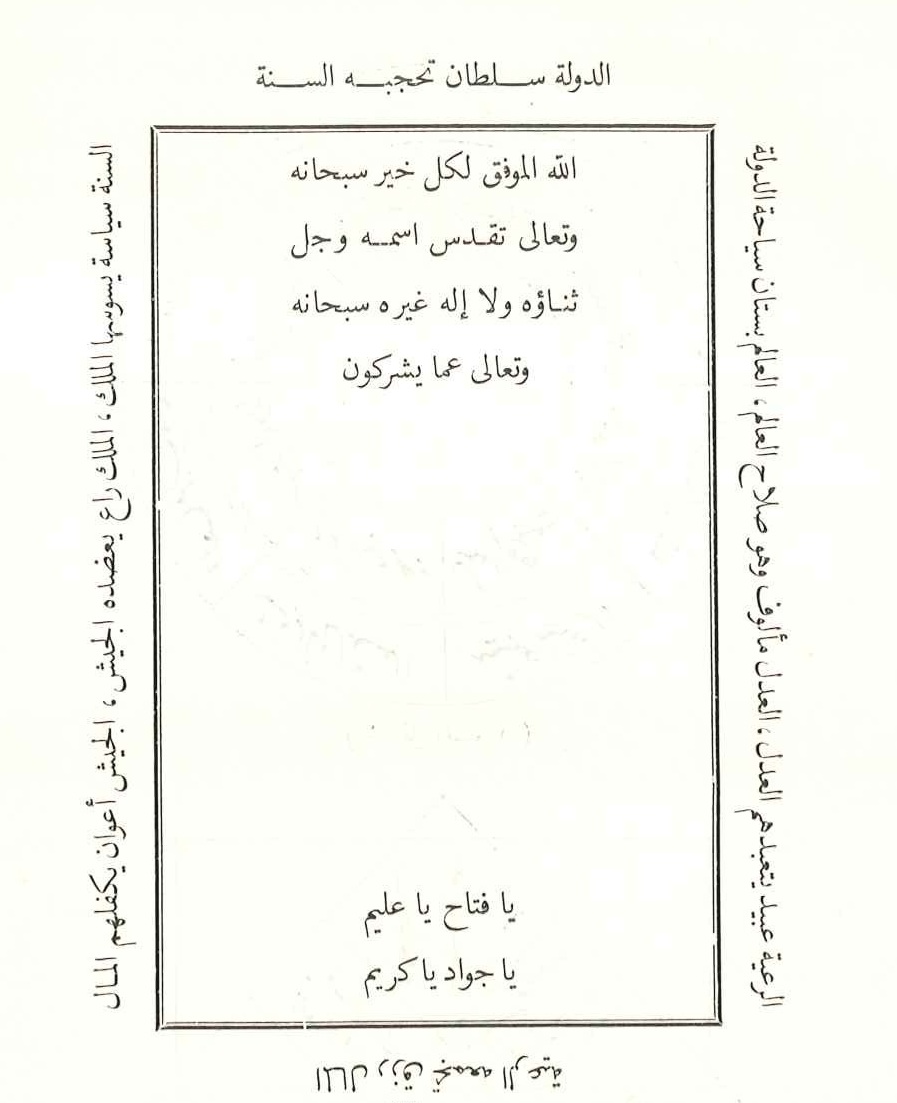 الدولة سلطان تحجبه السنة
السنة سياسة يسوسها الملك، الملك راع يعضده الجيش، الجيش أعوان يكفلهم المال
المال رزق تجمعه الرعية
الرعية عبيد يتعبدهم العدل، العدل مألوف وهو صلاح العالم، العالم بستان سياحة الدولة
الله الموفق لكل خير سبحانه
وتعالى تقدس اسمه وجل
ثناؤه ولا إله غيره سبحانه
وتعالى عما يشركون
يا فتاح يا عليم
يا جواد يا كريم